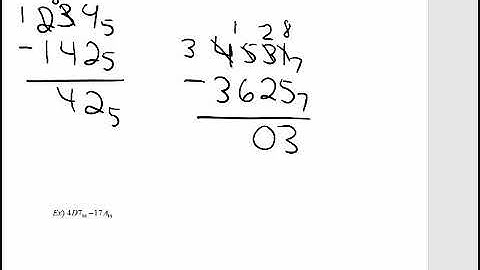 1 234₅
−142₅
42₅
1 2 8
3 4531₇
−3625₇
03
Ex) 4D7₁₆ −17A₁₆